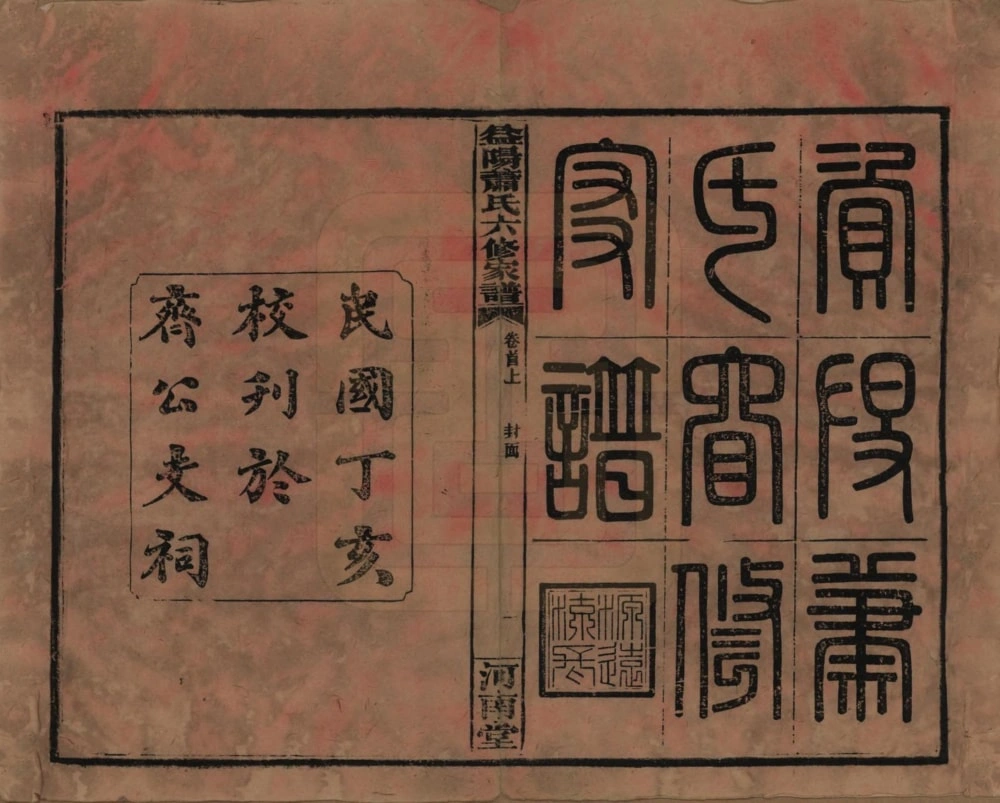 資
蕭
氏
修
家譜
源遠
流長
益陽蕭氏六修家譜
卷首上
封面
河南堂
民國丁亥
校刊於
齊公支祠